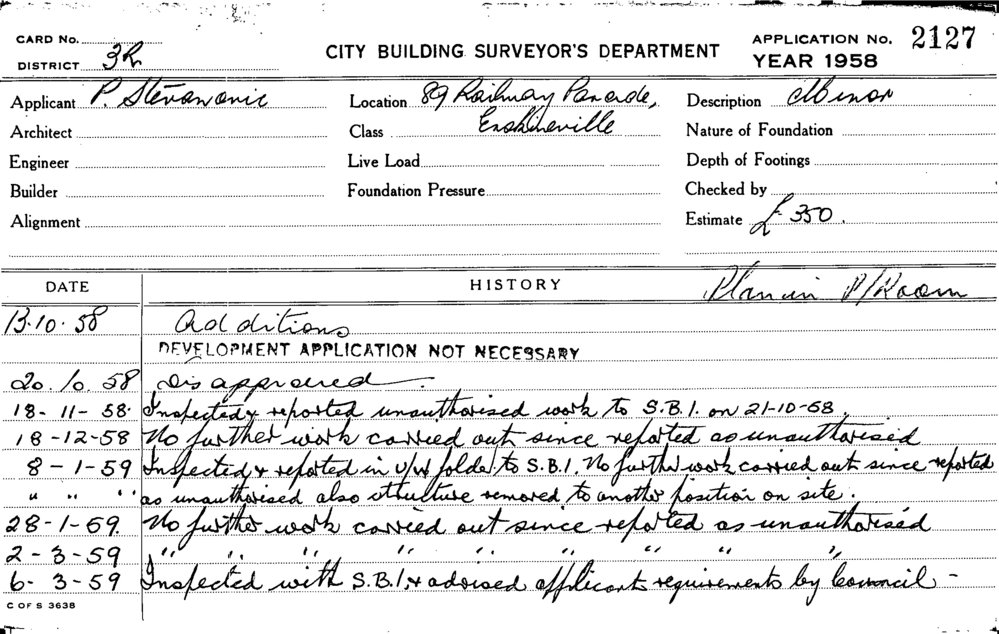 CARD No.
DISTRICT 3R
CITY BUILDING SURVEYOR'S DEPARTMENT
APPLICATION No. 2127
YEAR 1958
Applicant P. Stevanovic
Location 89 Railway Parade,
Description Minor
Architect
Class Erskineville
Nature of Foundation
Engineer
Live Load
Depth of Footings
Builder
Foundation Pressure
Checked by
Alignment
Estimate £350.
DATE
HISTORY
Plan in P/Room
13.10.58 Additions
DEVELOPMENT APPLICATION NOT NECESSARY
20.10.58 Disapproved.
18-11-58. Inspected & reported unauthorised work to S.B.I. on 21-10-58.
18-12-58 No further work carried out since reported as unauthorised
8-1-59 Inspected & reported in U/W folder to S.B.I. No further work carried out since reported
" " " as unauthorised also structure removed to another position on site.
28-1-59. No further work carried out since reported as unauthorised
2-3-59 " " " " " " " "
6-3-59 Inspected with S.B.I. & advised applicant requirements by Council -
C OF S 3638